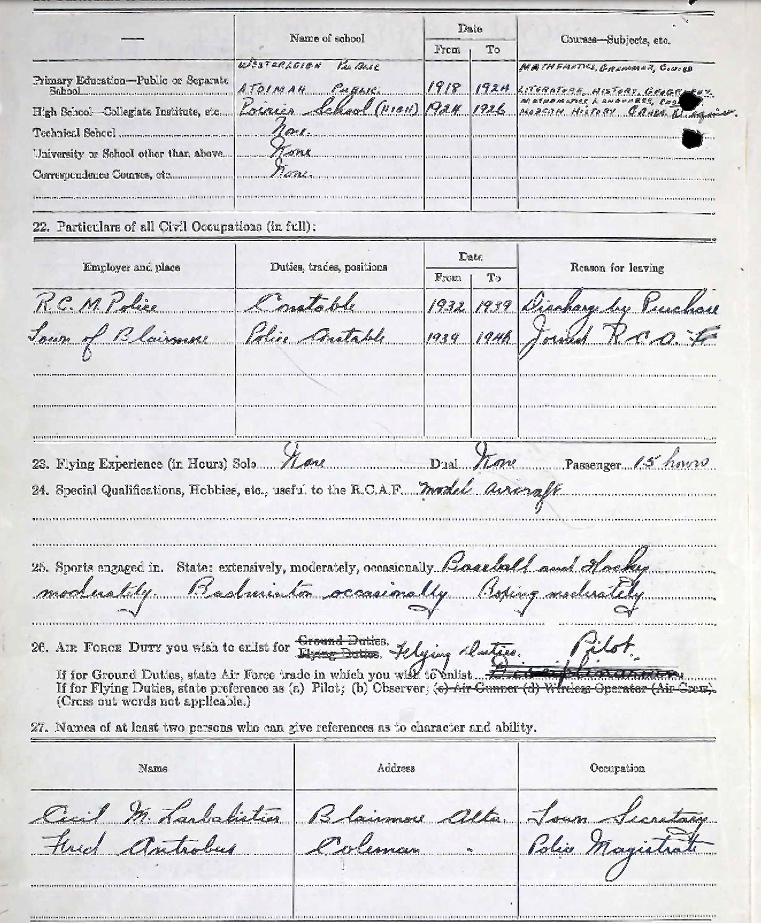 Date
— Name of school Courses—Subjects, etc.
From To
Public MATHEMATICS, GRAMMER,
Primary Education—Public or Separate
School PUBLIC. 1918 1924 LITERATURE, HISTORY, GEOGRAPHY.
High School—Collegiate Institute, etc. Poirier School (HIGH) 1924 1926 MODERN HISTORY
MATHEMATICS, LANGUAGES,
Technical School None.
University or School other than above None
Correspondence Courses, etc. None.
22. Particulars of all Civil Occupations (in full):
Date
Employer and place Duties, trades, positions Reason for leaving
From To
R.C.M. Police Constable 1932 1939 Discharge by Purchase
Town of Blairmore Police Constable 1939 Joined R.C.A.F.
23. Flying Experience (in Hours) Solo None Dual None Passenger 15 hours
24. Special Qualifications, Hobbies, etc., useful to the R.C.A.F. model aircraft
25. Sports engaged in. State: extensively, moderately, occasionally Baseball and Hockey
moderately. Badminton occasionally Boxing moderately
26. AIR FORCE DUTY you wish to enlist for Ground Duties. Flying Duties. Flying Duties. Pilot.
If for Ground Duties, state Air Force trade in which you wish to enlist Disciplinarian
If for Flying Duties, state preference as (a) Pilot; (b) Observer; (c) Air Gunner (d) Wireless Operator (Air Crew).
(Cross out words not applicable.)
27. Names of at least two persons who can give references as to character and ability.
Name Address Occupation
Cecil M. Blairmore Alta. Town Secretary
Fred Antrobus Coleman " Police Magistrate